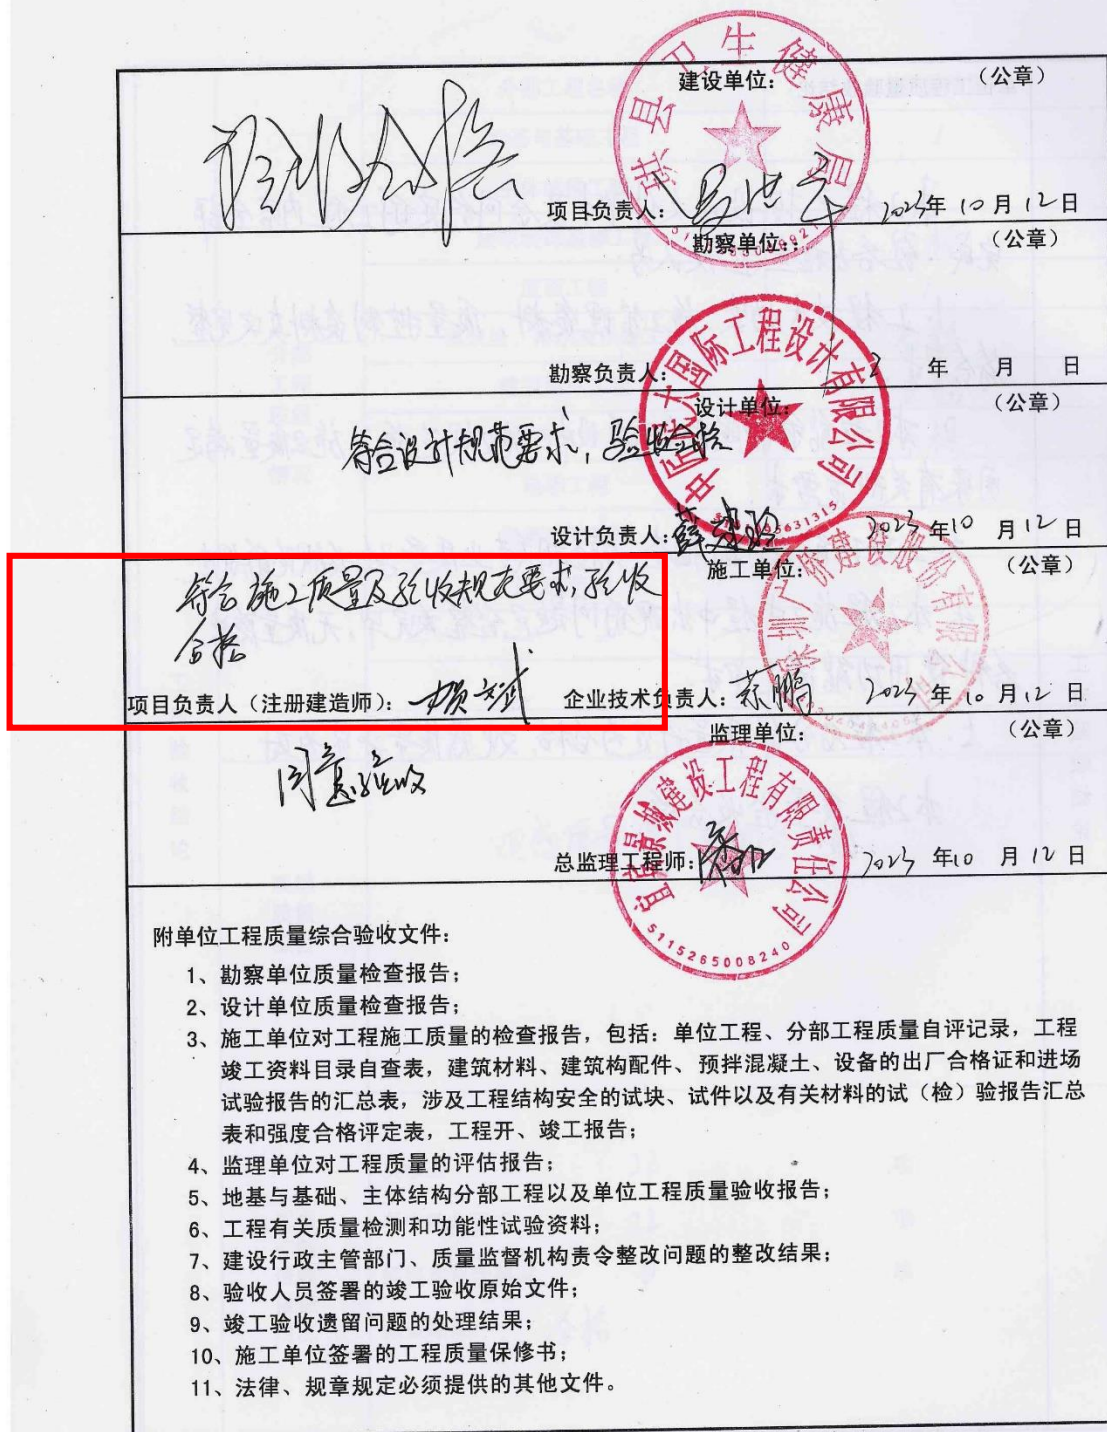 建设单位: （公章）
验收合格
项目负责人: 2023年10月12日
珙县卫生健康局
勘察单位: （公章）
勘察负责人: 年 月 日
设计单位: （公章）
中际大国际工程设计有限公司
符合设计规范要求，验收合格
设计负责人: 2023年10月12日
施工单位: （公章）
深圳广桥建设股份有限公司
符合施工质量及验收规范要求，验收
合格
项目负责人（注册建造师）: 企业技术负责人: 2023年10月12日
监理单位: （公章）
同意验收
宜宾景城建设工程有限责任公司
5115265008240
总监理工程师: 2023年10月12日
附单位工程质量综合验收文件:
1、勘察单位质量检查报告；
2、设计单位质量检查报告；
3、施工单位对工程施工质量的检查报告，包括：单位工程、分部工程质量自评记录，工程
竣工资料目录自查表，建筑材料、建筑构配件、预拌混凝土、设备的出厂合格证和进场
试验报告的汇总表，涉及工程结构安全的试块、试件以及有关材料的试（检）验报告汇总
表和强度合格评定表，工程开、竣工报告；
4、监理单位对工程质量的评估报告；
5、地基与基础、主体结构分部工程以及单位工程质量验收报告；
6、工程有关质量检测和功能性试验资料；
7、建设行政主管部门、质量监督机构责令整改问题的整改结果；
8、验收人员签署的竣工验收原始文件；
9、竣工验收遗留问题的处理结果；
10、施工单位签署的工程质量保修书；
11、法律、规章规定必须提供的其他文件。